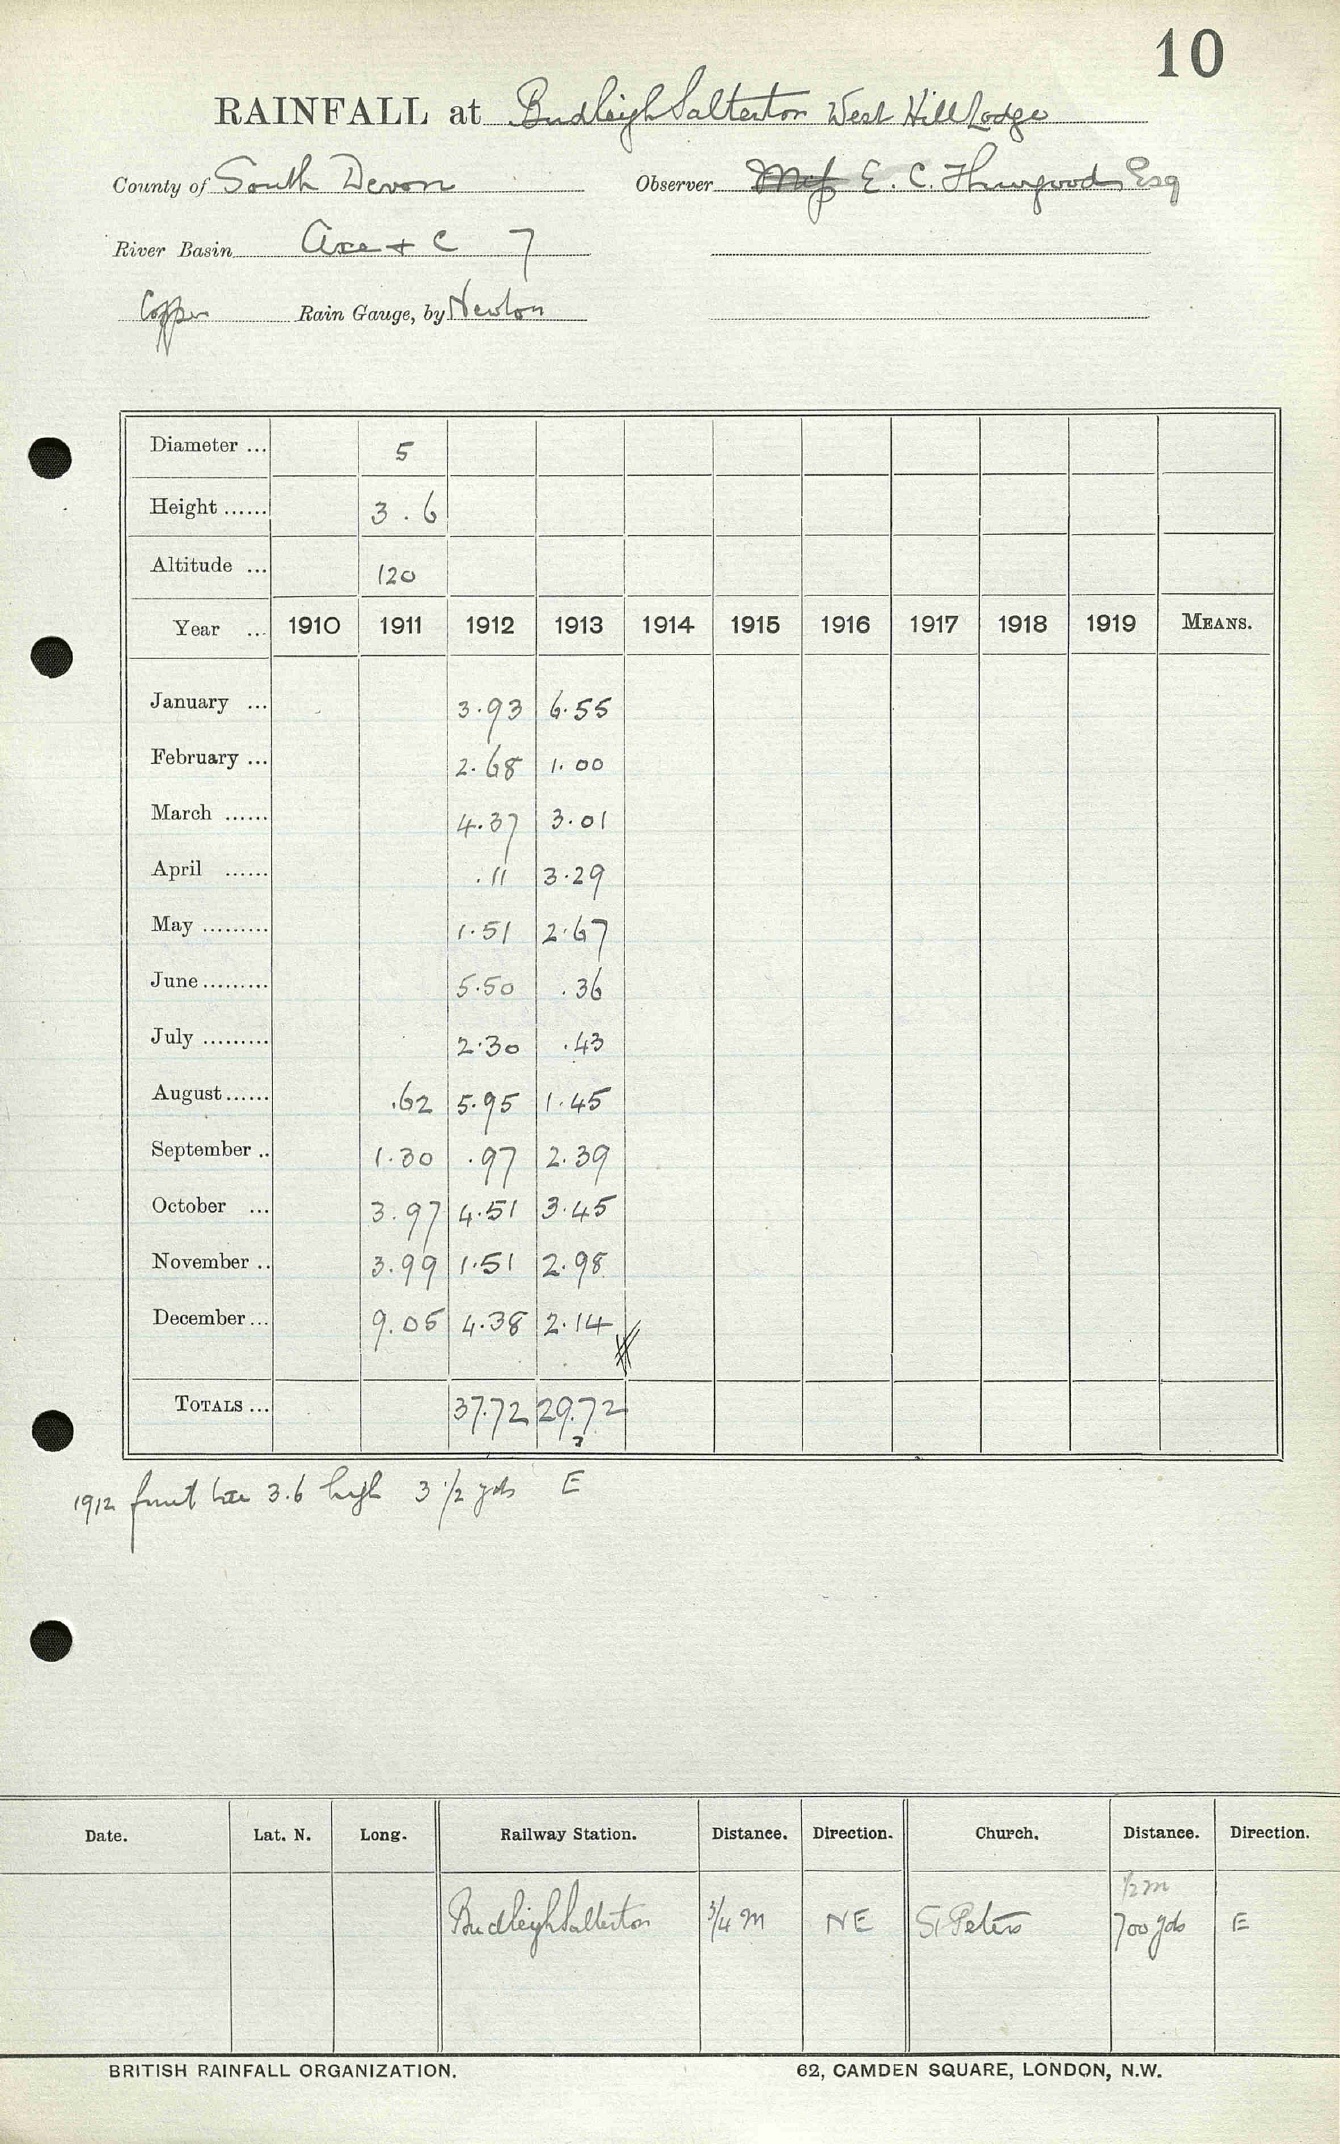 10
RAINFALL at Budleigh Salterton West Hill Lodge
County of South Devon Observer Miss E. C. Thurgood, Esq
River Basin Axe + C 7
Copper Rain Gauge, by Newton
Diameter ... 5
Height ...... 3.6
Altitude ... 120
Year ... 1910 1911 1912 1913 1914 1915 1916 1917 1918 1919 MEANS.
January ... 3.93 6.55
February ... 2.68 1.00
March ...... 4.37 3.01
April ...... .11 3.29
May ......... 1.51 2.67
June ......... 5.50 .36
July ......... 2.30 .43
August ...... .62 5.95 1.45
September .. 1.30 .97 2.39
October ... 3.97 4.51 3.45
November .. 3.99 1.51 2.98
December ... 9.05 4.38 2.14
TOTALS ... 37.72 29.72
?
1912 fruit tree 3.6 high 3 1/2 yds E
Date. Lat. N. Long. Railway Station. Distance. Direction. Church. Distance. Direction.
1/2 m
Budleigh Salterton 3/4 m NE St Peters 700 yds E
BRITISH RAINFALL ORGANIZATION. 62, CAMDEN SQUARE, LONDON, N.W.